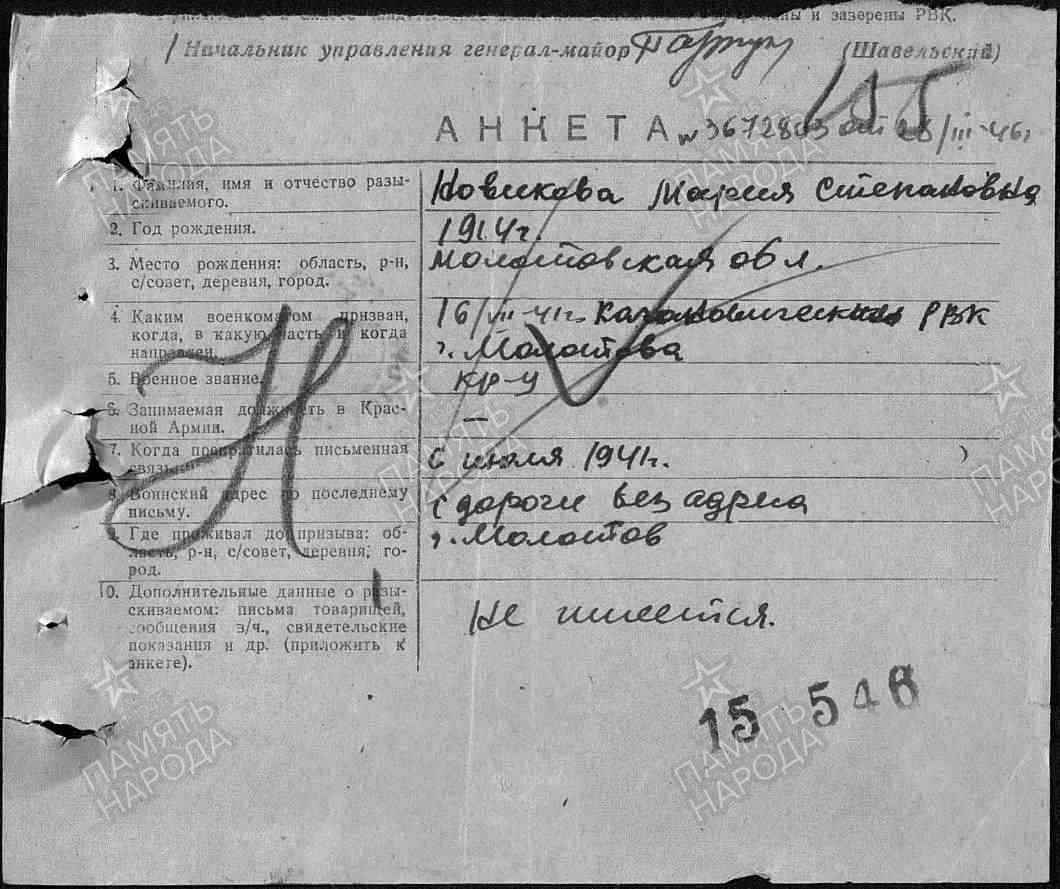 и заверены РВК.
Начальник управления генерал-майор (Шавельский)
АНКЕТА № 3672803 от 28/III-46г
1. Фамилия, имя и отчество разыскиваемого. Новикова Мария Степановна
2. Год рождения. 1914г.
3. Место рождения: область, р-н, Молотовская обл.
с/совет, деревня, город.
4. Каким военкоматом призван, 16/III-41г. РВК
когда, в какую часть и когда г. Молотова
направлен.
5. Военное звание. кр-ц
6. Занимаемая должность в Крас- —
ной Армии.
7. Когда прекратилась письменная 6 июля 1941г.
связь.
8. Воинский адрес по последнему с дороги без адриса
письму.
9. Где проживал до призыва: об- г. Молотов
ласть, р-н, с/совет, деревня, го-
род.
10. Дополнительные данные о разы-
скиваемом: письма товарищей, Не имеется.
сообщения в/ч., свидетельские
показания и др. (приложить к
анкете).
15 546
ПАМЯТЬ НАРОДА